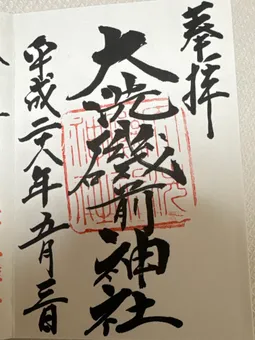 奉拝
大洗磯前神社
平成二十八年五月三日